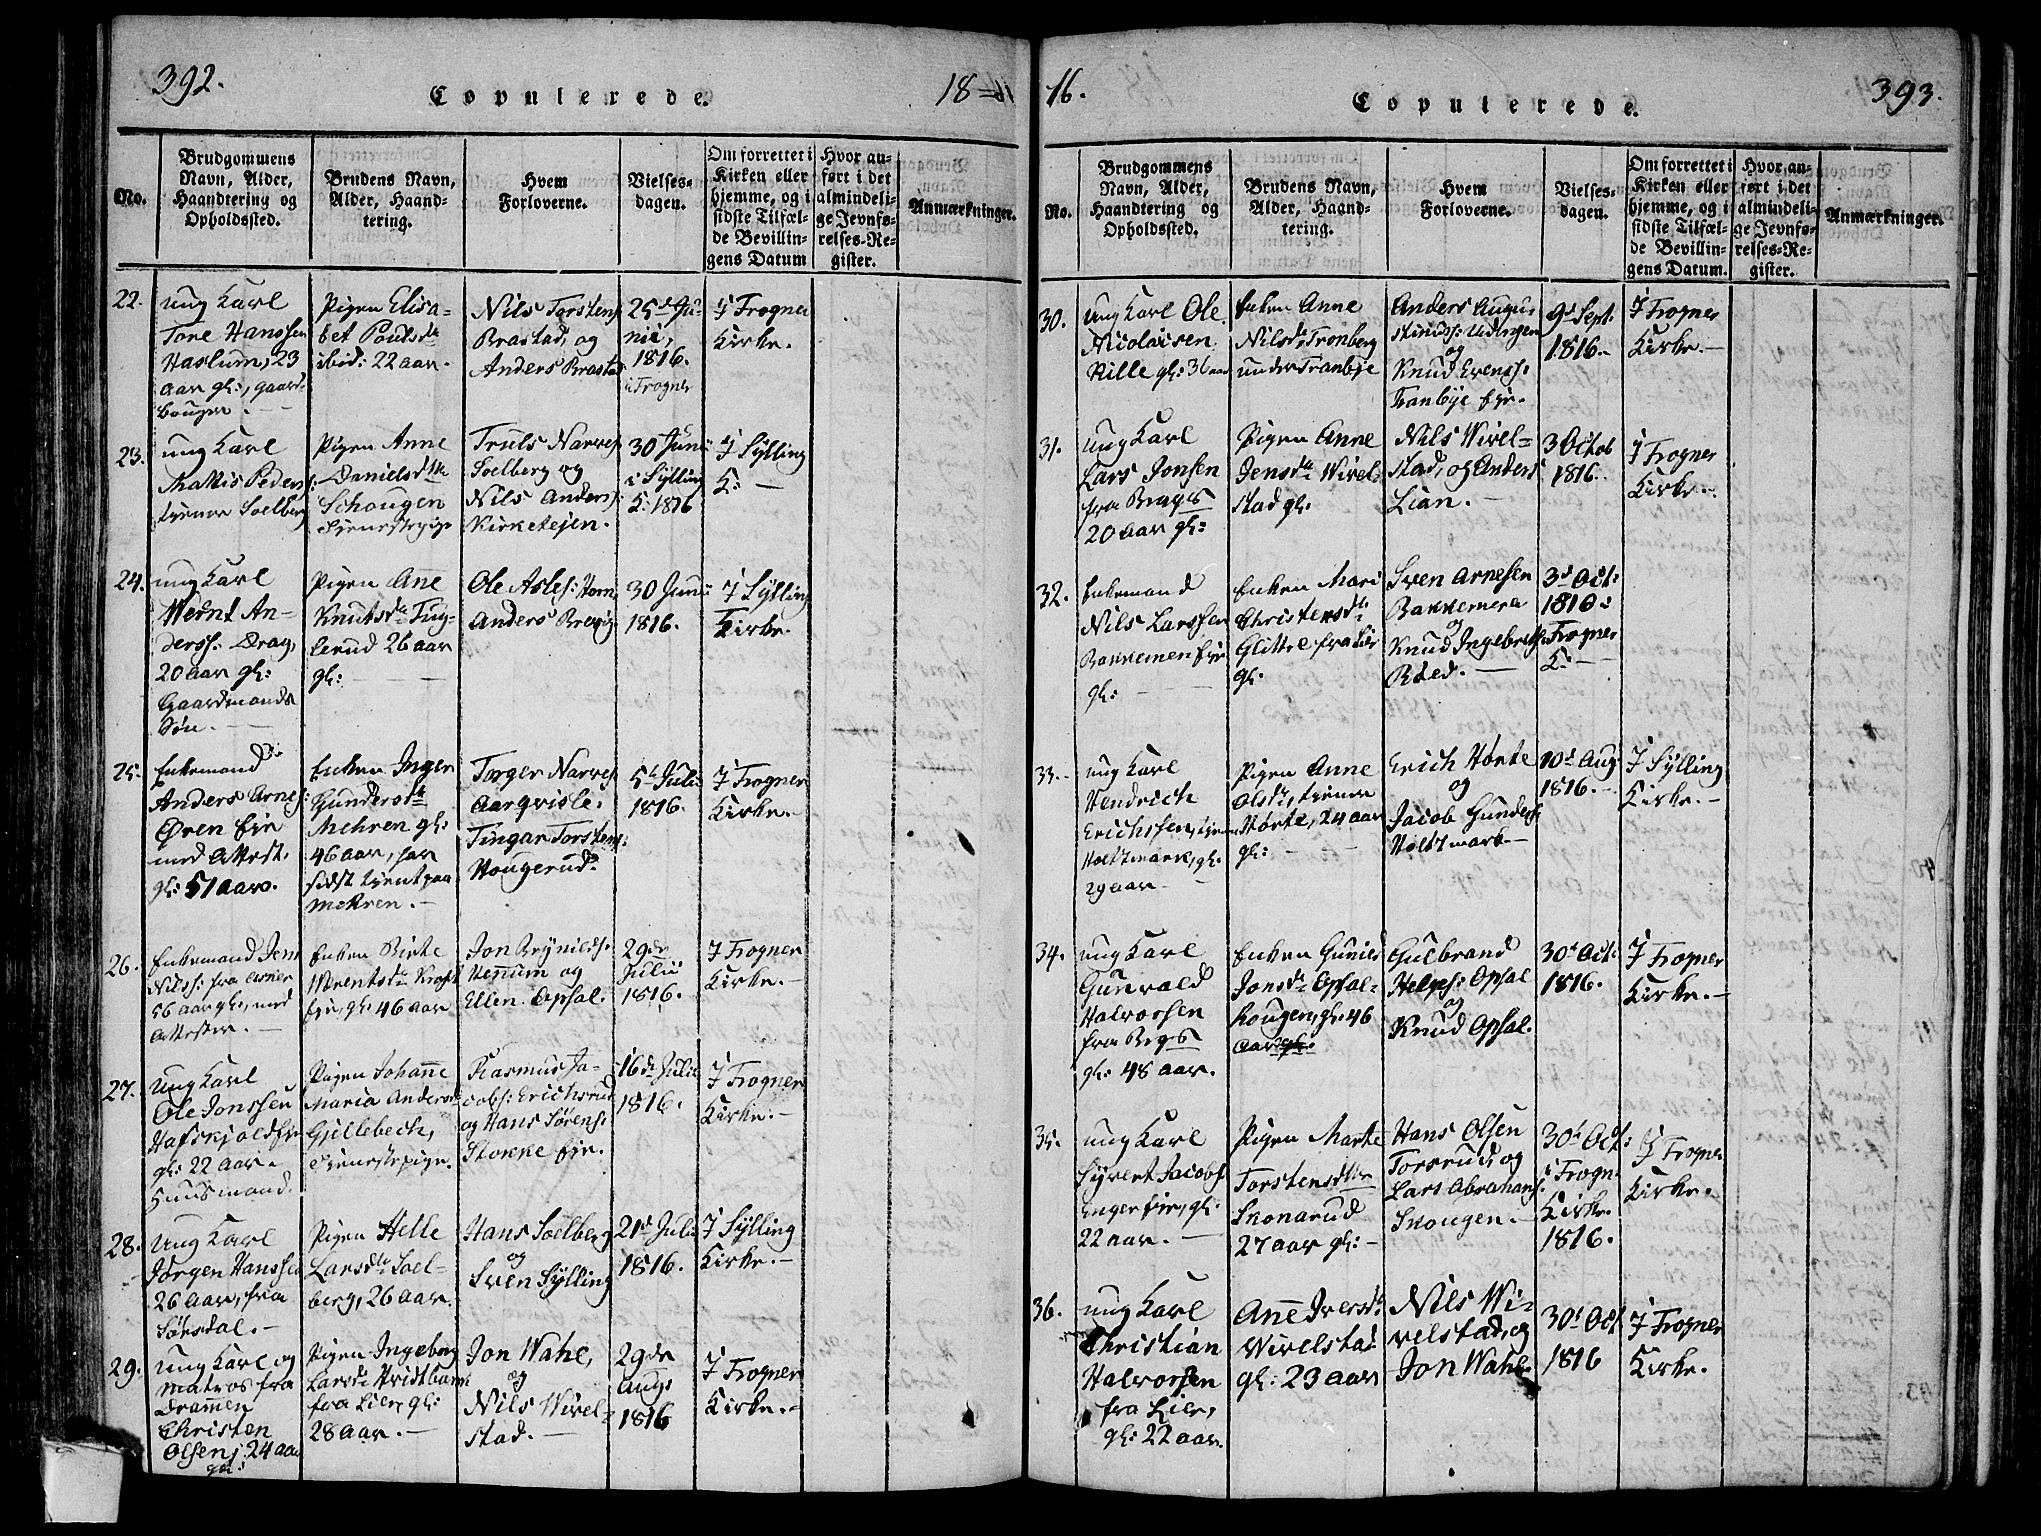 392.
Copulerede.
18
No.
Brudgommens
Navn, Alder,
Haandtering og
Opholdssted.
Brudens Navn,
Alder, Haand-
tering.
Hvem
Forloverne.
Vielses-
dagen.
Om forrettet i
Kirken eller
hjemme, og i
sidste Tilfæl-
de Bevillin-
gens Datum
Hvor an-
ført i det
almindeli-
ge Jevnfø-
relses-Re-
gister.
Anmærkninger.
22.
ung Karl
Tore Hanssen
Haslum, 23
aar gl:, gaard-
bruger.
Pigen Elisa-
bet Poulsdtr
ibid: 22 aar.
Nils Torstens:
Brastad, og
Anders Brastad
25de Ju-
nii,
1816.
i Frogner
I Frogner
Kirke.
23.
ung Karl
Mattis Peders:
tjener Soelberg
Pigen Anne
Danielsdtr
Schougen
Tjenestepige
Truls Narves:
Soelberg og
Nils Anders:
Kirketejen.
30 Junii
i Sylling
K: 1816
I Sylling
K:
24.
ung Karl
Wernt An-
derss: Drag,
20 aar gl:
Gaardmands
Søn.
Pigen Anne
Knutsdtr Ting-
lerud 26 aar
gl:
Ole Asles: Horn
Anders Brevig
30 Junii
1816.
I Sylling
Kirke.
25.
Enkemand
Anders Arnes:
Øren
med Attest.
gl: 51 aar.
Enken Inger
Gundersdtr
Mehren gl:
46 aar, har
sidst tjent paa
Mehren.
Torger Narves:
Aarqvisle.
Tingar Torstens:
Hougerud.
5te Julii
1816.
I Frogner
Kirke.
26.
Enkemand Jens
Nilss: fra Asker
56 aar gl:, med
Attester.
Enken Birte
Wrentsdtr Kroft
gl: 46 aar
Jon Brynilds:
Hennum og
Ellen Opsal.
29de
Julii
1816.
I Frogner
Kirke.
27.
ung Karl
Ole Jonssen
Hafskjold
gl: 22 aar.
Huusmand.
Pigen Johanne
Maria Andersdtr
Gjellebech,
Tjenestepige.
Rasmus Ja-
cobs: Erichsrud
og Hans Sørens:
Stokke
16de Julii
1816.
I Frogner
Kirke.
28.
Ung Karl
Jørgen Hanssen
26 aar, fra
Sørsdal.
Pigen Helle
Larsdtr Soel-
berg, 26 aar.
Hans Soelberg
og
Sven Sylling
21de Julii
1816.
I Sylling
Kirke.
29.
Ung Karl og
Matros fra
Drammen
Christen
Olsen, 24 aar
gl:
Pigen Ingeborg
Larsdtr
fra Lier, gl:
28 aar.
Jon Wahe,
og
Nils Wivel-
stad.
29de
Aug:
1816
I Frogner
Kirke.
16.
Copulerede.
393.
No.
Brudgommens
Navn, Alder,
Haandtering og
Opholdssted.
Brudens Navn,
Alder, Haand-
tering.
Hvem
Forloverne.
Vielses-
dagen.
Om forrettet i
Kirken eller
hjemme, og i
sidste Tilfæl-
de Bevillin-
gens Datum.
Hvor an-
ført i det
almindeli-
ge Jevnfø-
relses-Re-
gister.
Anmærkninger.
30.
Ung Karl Ole
Nicolaisen
Rille gl: 36 aar
Enken Anne
Nilsdtr Tronberg
under Tranbye
Anders Augus-
tinus:
og
Knud Evens:
Tranbye
9de Sept:
1816.
I Frogner
Kirke.
31.
ung Karl
Lars Jonsen
fra Brages
20 aar gl:
Pigen Anne
Jensdtr Wivel-
stad gl.
Nils Wivel-
stad, og Anders
Lian.
3 Octob
1816.
I Frogner
Kirke.
32.
Enkemand
Nils Larssen
Bakkemen
gl:
Enken Mari
Christensdtr
Glittre fra Lier
gl:
Sven Arnesen
Bakkemen
og
Knud Ingebretss:
Røed.
3de Oct:
1816:
i Frogner
K:
33.
ung Karl
Hendrich
Erichssen,
Holtzmark, gl:
29 aar
Pigen Anne
Olsdtr, tjener
Hørte, 24 aar
gl:
Erich Hørte
og
Jacob Gunders:
Holtzmark
10de Aug:
1816.
I Sylling
Kirke.
34.
ung Karl
Gunvald
Halvorsen
fra Brages
gl: 48 aar.
Enken Gunild
Jonsdtr Opsal-
hougen, gl: 46
aar
Gulbrand
Helges: Opsal
og
Knud Opsal.
30de Oct:
1816.
I Frogner
Kirke.
35.
ung Karl
Syvert Jacobs:
Enger gl:
22 aar.
Pigen Marte
Torstensdtr
Skonarud
27 aar gl:
Hans Olsen
Torsrud, og
Lars Abrahams:
Skougen.
30de Oct:
i Frogn:
Kirke.
1816.
I Frogner
Kirke.
36.
ung Karl
Christian
Halvorsen
fra Lier,
gl: 22 aar.
Anne Iversdtr
Wivelstad
gl: 23 aar
Nils Wi-
velstad, og
Jon Wahe.
30de Oct
1816
I Frogner
Kirke.